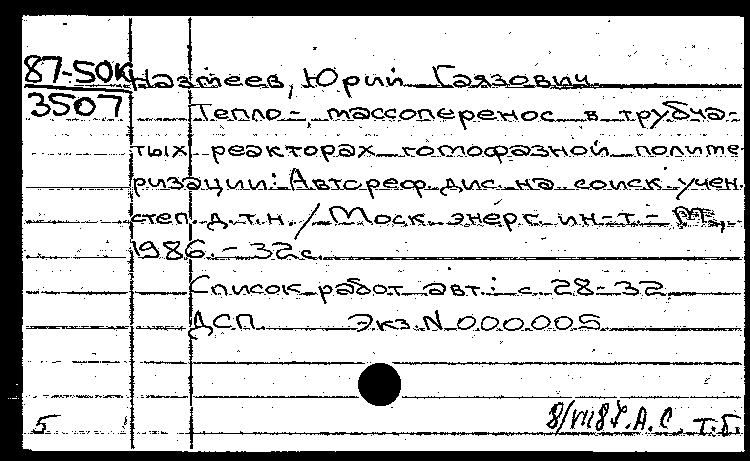 87-50К Назмеев, Юрий Гаязович
3507 Тепло-, массоперенос в трубча-
тых реакторах гомофазной полиме-
ризации: Автореф. дис. на соиск учен.
степ. д.т.н. / Моск. энерг. ин-т. -
1986. - 32 с.
Список работ авт.: с 28-32
ДСП Экз. N 000005
5 8/VII87. А.С. Т.Б.